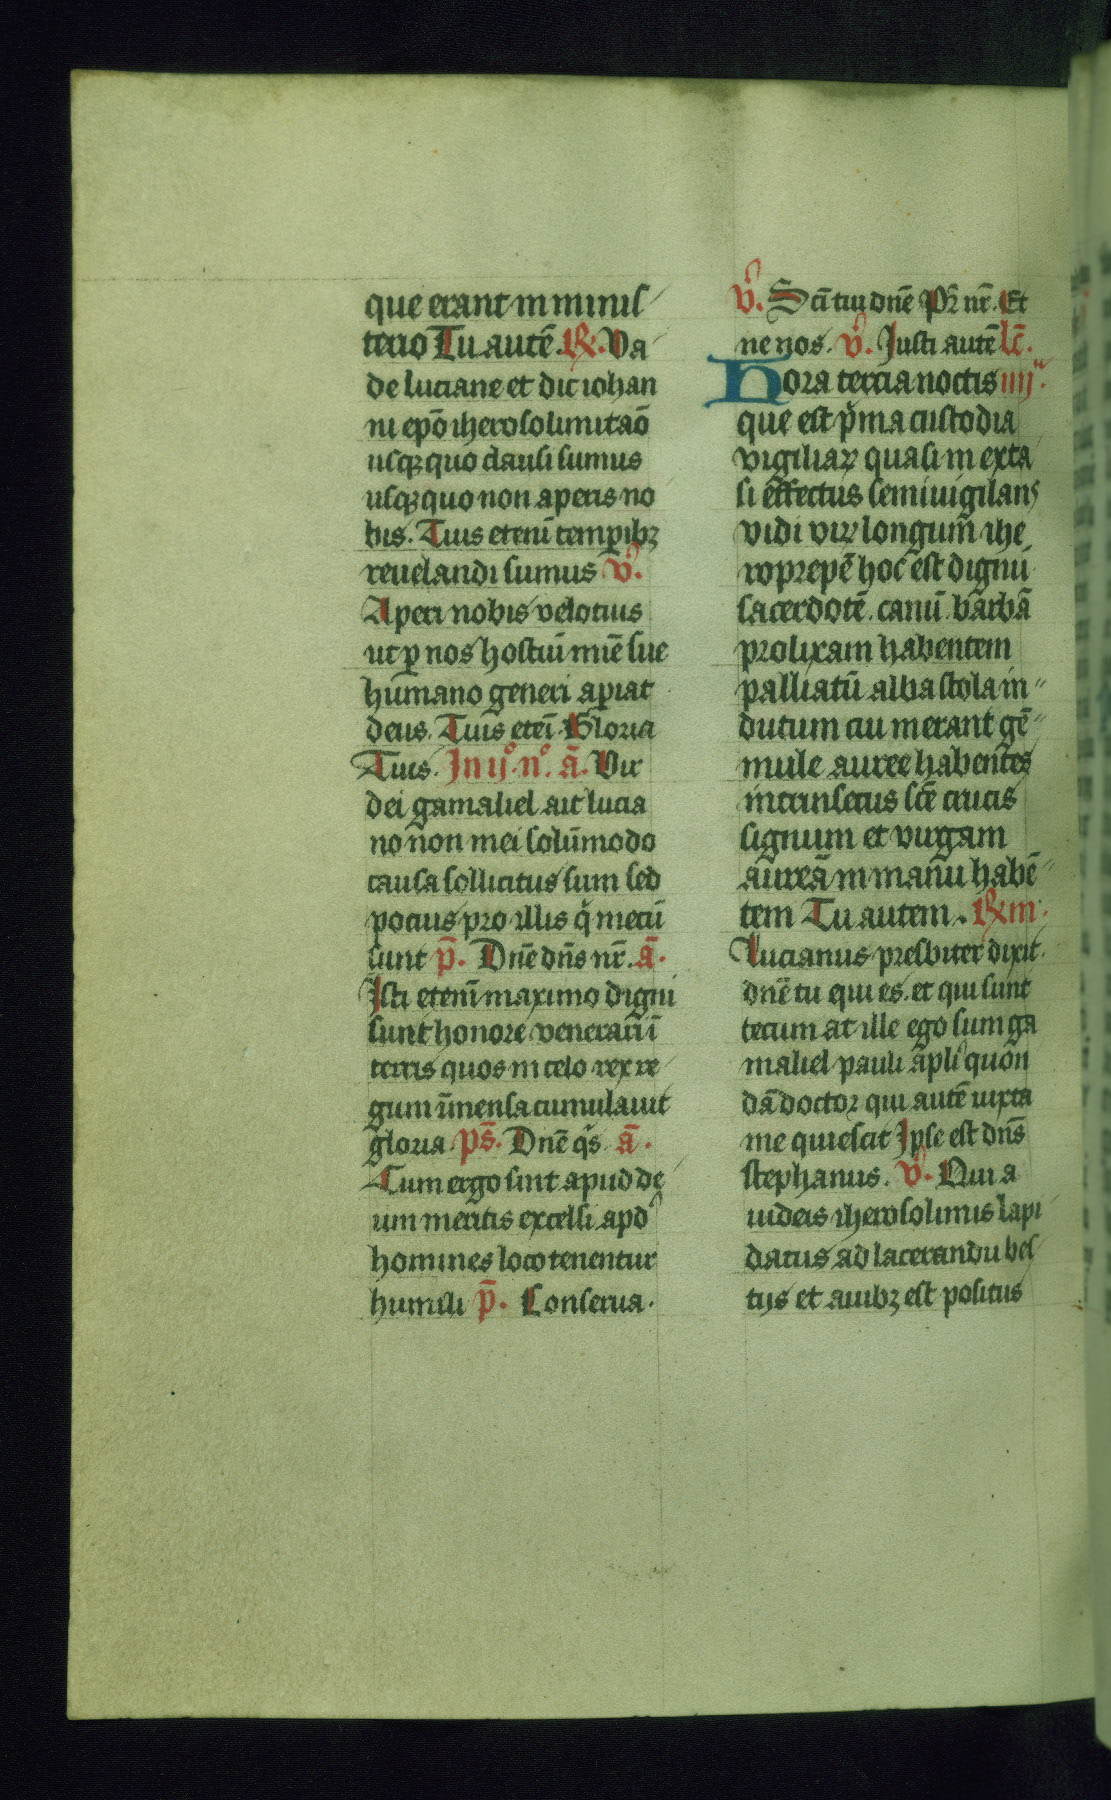 que erant in minis
terio Tu autē. R. Va
de luciane et dic iohan
ni epō iherosolimitaō
usqꝫ quo clausi sumus
usqꝫ quo non aperis no
bis. Tuis etenī temꝑibꝫ
reuelandi sumus. V.
Aperi nobis velotius
ut ꝑ nos hostiū mīe sue
humano generi aꝑiat
deus. Tuis etēī. Gloria
Tuis. In ijº. nº. ā. Vir
dei gamaliel ait lucia
no non mei solūmodo
causa sollicitus sum sed
pocius pro illis q̄ mecū
sunt p̄. Dnē dn̄s nr̄. ā.
Isti etenī maximo digni
sunt honore venerari ī
terris quos in celo rex re
gum īmensa cumulauit
gloria. ps̄. Dnē q̄s. ā.
Cum ergo sint apud de
um meritis excelsi. apd
homines loco tenentur
humili p̄. Conserua.
V. Sc̄i tui dnē Pr̄ nr̄. Et
ne nos. V. Justi autē lc̄.
Hora tercia noctis iiij.
que est p̄ma custodia
vigiliaꝝ quasi in exta
si effectus semiuigilans
vidi viꝝ longum ihe
roprepē hoc est dignū
sacerdotē. canū. barbā
prolixam habentem
palliatū alba stola in
dutum cui inerant gē
mule auree habentes
intrinsecus sc̄e crucis
signum et virgam
aureā in manu habē
tem Tu autem. R m
Lucianus presbiter dixit.
dnē tu qui es. et qui sunt
tecum at ille ego sum ga
maliel pauli apli quon
dā doctor qui autē iuxta
me quiescit Ipse est dn̄s
stephanus. V. Qui a
iudeis iherosolimis lapi
datus ad lacerandū bes
tijs et auibꝫ est positus